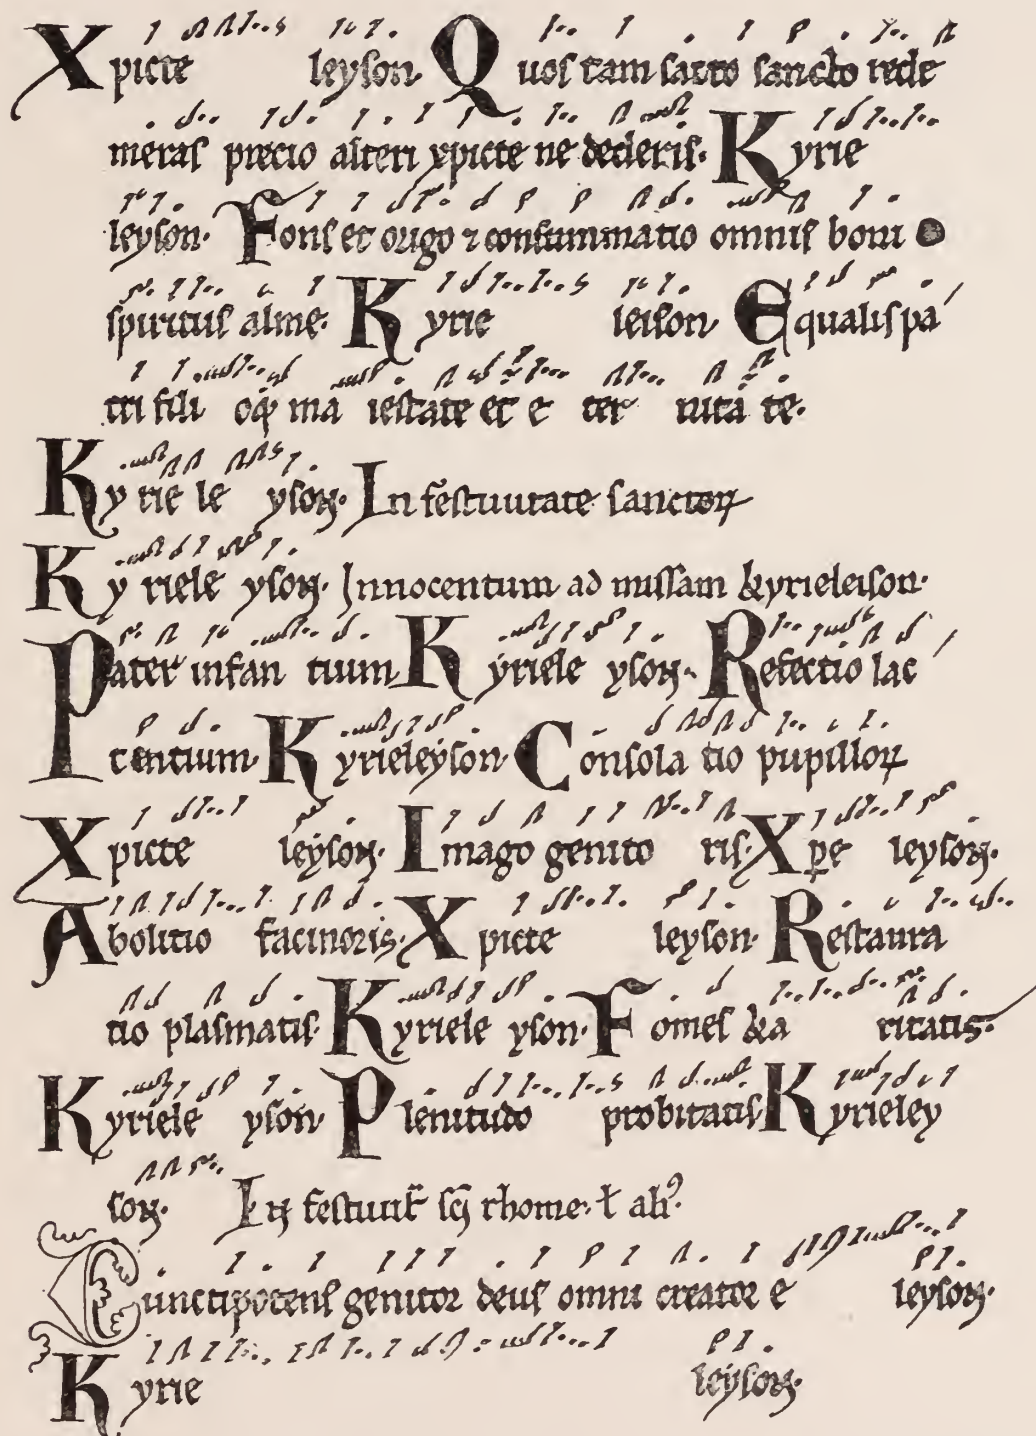 Xpicte leyson. Quos tam sacro sancto rede
meras precio alteri xpicte ne dederis. Kyrie
leyson. Fons et origo ⁊ consummatio omnis boni o
spiritus alme. Kyrie leison. Equalis pa
tri fili oq; ma iestate et e ter nita te.
Ky rie le yson. In festiuitate sanctoꝝ
Ky riele yson. Innocentum ad missam kyrieleison.
Pater infan tium Kyriele yson. Refectio lac
tentium. Kyrieleyson. Consola tio pupilloꝝ
Xpicte leyson. Imago genito ris. Xp̄e leyson.
Abolitio facinoris. Xpicte leyson. Restaura
tio plasmatis. Kyriele yson. Fomes ka ritatis.
Kyriele yson. Plenitudo probitatis Kyrieley
son. In festiuit̄ sc̄i rhome. ł ali⁹.
Cunctipotens genitor deus omni creator e leyson.
Kyrie leyson.